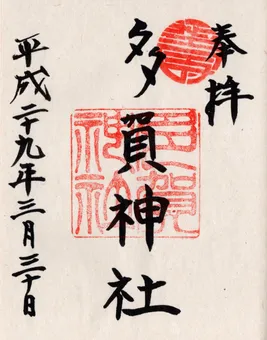 奉拝
寿
多賀神社
多賀神社
平成二十九年三月三十日